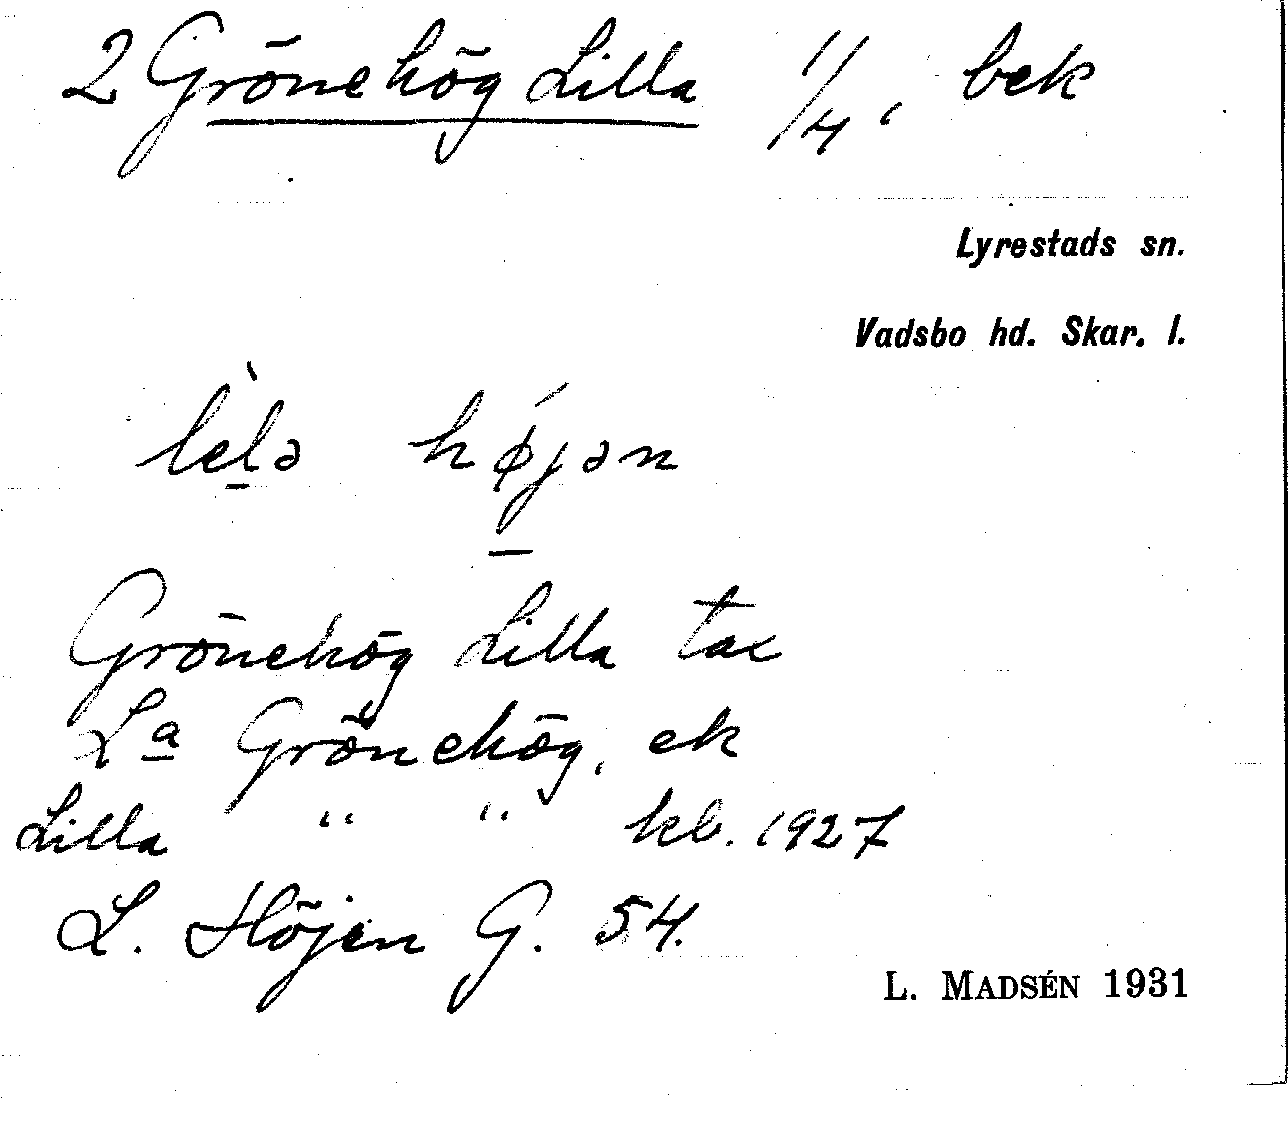 2 Grönehög Lilla 1/4, bek
Lyrestads sn.
Vadsbo hd. Skar. l.
lèlə højən
Grönehög Lilla tax
La Grönehög, ek
Lilla " " kb. 1927
L. Höjen G. 54.
L. MADSÉN 1931